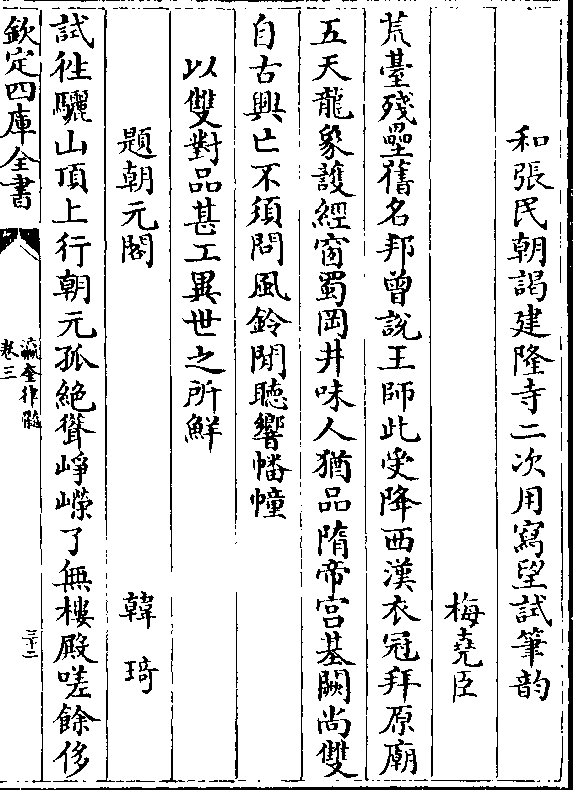 和張民朝謁建隆寺二次用寫望試筆韵
梅堯臣
荒臺殘壘舊名邦曾說王師此受降西漢衣冠拜原廟
五天龍象護經窗蜀岡井味人猶品隋帝宮基闕尚雙
自古興亡不須問風鈴閒聽響幡幢
以雙對品甚工異世之所鮮
題朝元閣
韓琦
試徃驪山頂上行朝元孤絶聳崢嶸了無樓殿嗟餘侈
欽定四庫全書
瀛奎律髓
卷三
三十二